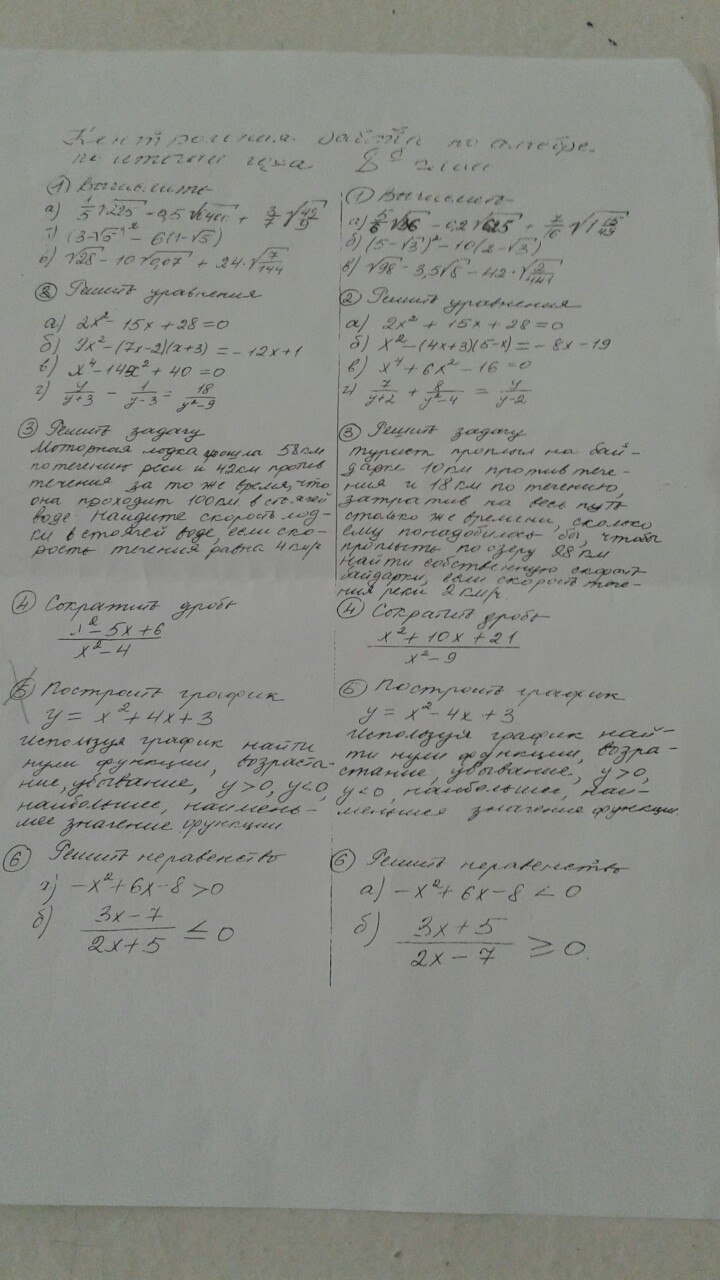 Контрольная работа по алгебре
по итогам года 8º класс
① Вычислить
а) 1/5 √225 - 0,5 √ + 3/7 √49/9
б) (3-√5)² - 6(1-√5)
в) √28 - 10√0,07 + 24·√7/144
② Решить уравнения
а) 2x² - 15x + 28 = 0
б) 9x² - (7x-2)(x+3) = -12x+1
в) x⁴ - 14x² + 40 = 0
г) y/(y+3) - 1/(y-3) = 18/(y²-9)
③ Решить задачу
Моторная лодка прошла 58 км
по течению реки и 42 км против
течения за то же время, что
она проходит 100 км в стоячей
воде. Найдите скорость лод-
ки в стоячей воде, если ско-
рость течения равна 4 км/ч
④ Сократить дробь
x² - 5x + 6
x² - 4
⑤ Построить график
y = x² + 4x + 3
Используя график найти
нули функции, возраста-
ние, убывание, y>0, y<0,
наибольшее, наимень-
шее значение функции
⑥ Решить неравенство
а) -x² + 6x - 8 > 0
б) (3x-7)/(2x+5) ≤ 0
① Вычислить
а) 5/6 √36 - 0,2√625 + 7/16 √1 15/49
б) (5-√3)² - 10(2-√3)
в) √98 - 3,5√8 - 42·√2/441
② Решить уравнения
а) 2x² + 15x + 28 = 0
б) x² - (4x+3)(5-x) = -8x - 19
в) x⁴ + 6x² - 16 = 0
г) 7/(y+2) + 8/(y²-4) = y/(y-2)
③ Решить задачу
Турист проплыл на бай-
дарке 10 км против тече-
ния и 18 км по течению,
затратив на весь путь
столько же времени, сколько
ему понадобилось бы, чтобы
проплыть по озеру 28 км.
Найти собственную скорость
байдарки, если скорость тече-
ния реки 2 км/ч.
④ Сократить дробь
x² + 10x + 21
x² - 9
⑤ Построить график
y = x² - 4x + 3
Используя график най-
ти нули функции, возра-
стание, убывание, y>0,
y<0, наибольшее, наи-
меньшее значение функции
⑥ Решить неравенство
а) -x² + 6x - 8 < 0
б) (3x+5)/(2x-7) ≥ 0.